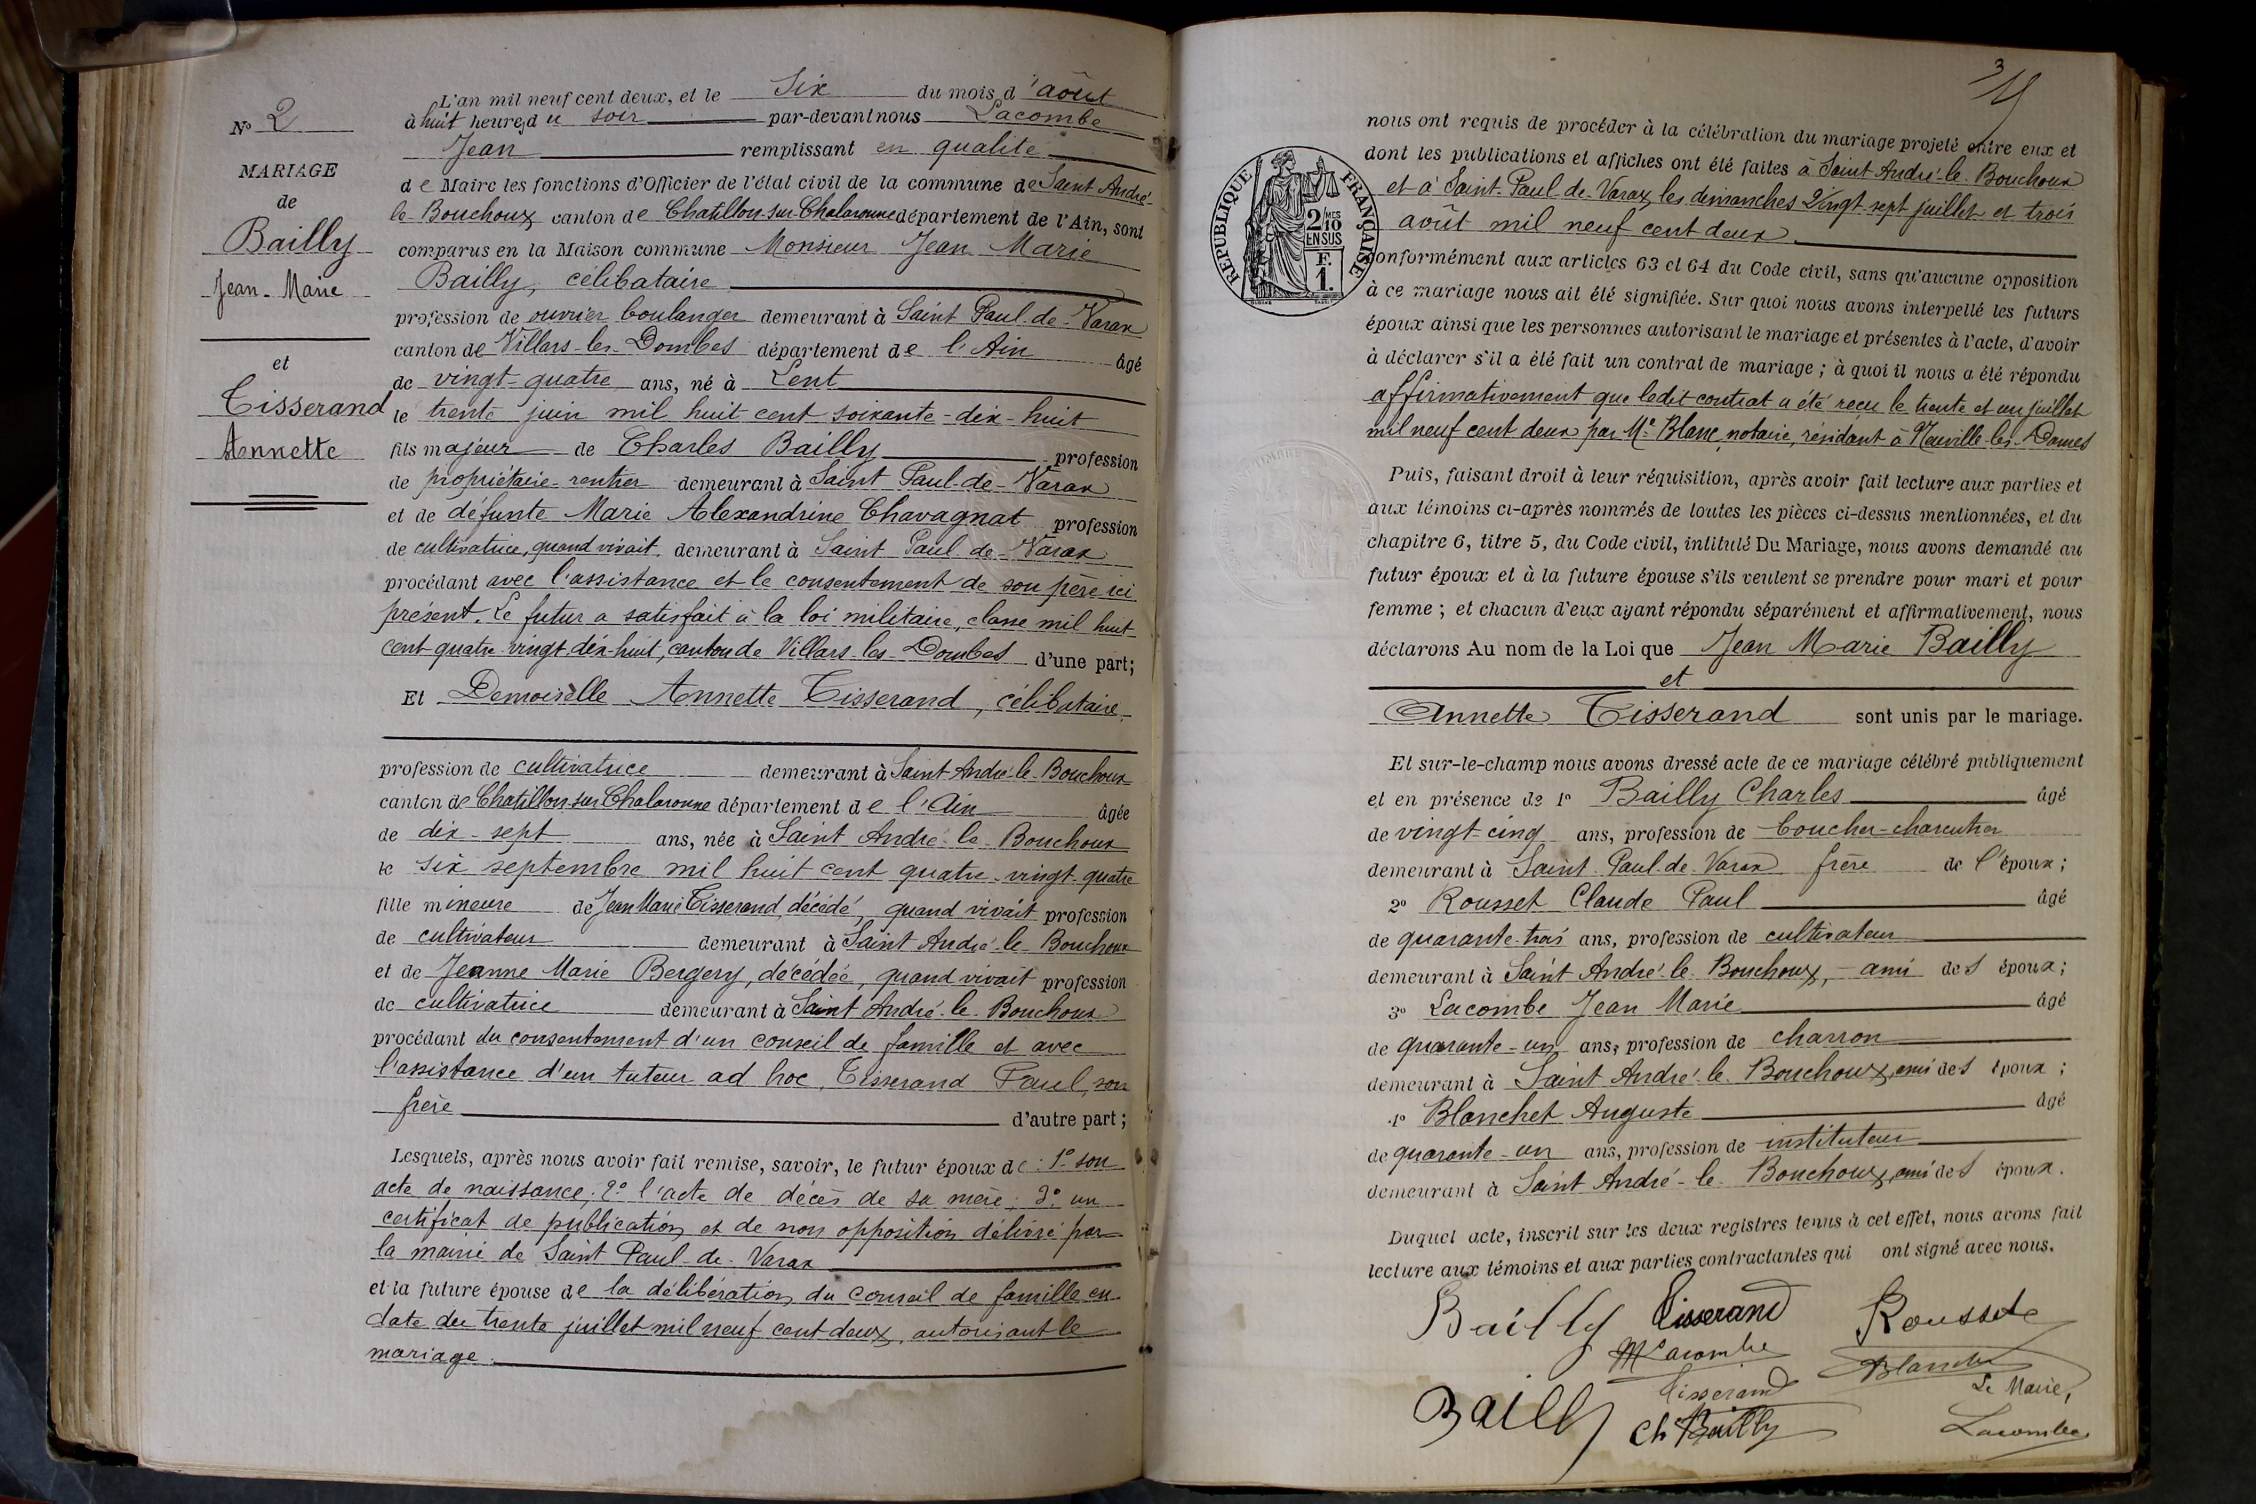 N° 2
MARIAGE
de
Bailly
Jean-Marie
et
Tisserand
Annette
L'an mil neuf cent deux, et le Six du mois d'août
à huit heures du soir par-devant nous Lacombe
Jean remplissant en qualité
de Maire les fonctions d'Officier de l'état civil de la commune de Saint André-
le-Bouchoux canton de Chatillon-sur-Chalaronne département de l'Ain, sont
comparus en la Maison commune Monsieur Jean Marie
Bailly, célibataire
profession de ouvrier boulanger demeurant à Saint Paul-de-Varax
canton de Villars-les-Dombes département de l'Ain âgé
de vingt-quatre ans, né à Lent
le trente juin mil huit cent soixante-dix-huit
fils majeur de Charles Bailly profession
de propriétaire-rentier demeurant à Saint Paul-de-Varax
et de défunte Marie Alexandrine Chavagnat profession
de cultivatrice, quand vivait, demeurant à Saint Paul de-Varax
procédant avec l'assistance et le consentement de son père ici
présent. Le futur a satisfait à la loi militaire, classe mil huit-
cent quatre-vingt-dix-huit, canton de Villars-les-Dombes d'une part;
Et Demoiselle Annette Tisserand, célibataire
profession de cultivatrice demeurant à Saint André-le-Bouchoux
canton de Chatillon-sur-Chalaronne département de l'Ain âgée
de dix-sept ans, née à Saint André-le-Bouchoux
le six septembre mil huit cent quatre-vingt-quatre
fille mineure de Jean Marie Tisserand, décédé, quand vivait profession
de cultivateur demeurant à Saint André-le-Bouchoux
et de Jeanne Marie Bergery, décédée, quand vivait profession
de cultivatrice demeurant à Saint André-le-Bouchoux
procédant du consentement d'un conseil de famille et avec
l'assistance d'un tuteur ad hoc, Tisserand Paul, son
frère d'autre part;
Lesquels, après nous avoir fait remise, savoir, le futur époux de : 1° son
acte de naissance; 2° l'acte de décès de sa mère; 3° un
certificat de publication et de non opposition délivré par
la mairie de Saint Paul-de-Varax
et la future épouse de la délibération du conseil de famille en
date du trente juillet mil neuf cent deux, autorisant le
mariage.
3
nous ont requis de procéder à la célébration du mariage projeté entre eux et
dont les publications et affiches ont été faites à Saint André-le-Bouchoux
et à Saint-Paul-de-Varax, les dimanches vingt-sept juillet et trois
août mil neuf cent deux
conformément aux articles 63 et 64 du Code civil, sans qu'aucune opposition
à ce mariage nous ait été signifiée. Sur quoi nous avons interpellé les futurs
époux ainsi que les personnes autorisant le mariage et présentes à l'acte, d'avoir
à déclarer s'il a été fait un contrat de mariage; à quoi il nous a été répondu
affirmativement que ledit contrat a été reçu le trente et un juillet
mil neuf cent deux par Me Blanc, notaire, résidant à Neuville-les-Dames
RÉPUBLIQUE FRANÇAISE
2/10MES
EN SUS
F.
1.
Puis, faisant droit à leur réquisition, après avoir fait lecture aux parties et
aux témoins ci-après nommés de toutes les pièces ci-dessus mentionnées, et du
chapitre 6, titre 5, du Code civil, intitulé Du Mariage, nous avons demandé au
futur époux et à la future épouse s'ils veulent se prendre pour mari et pour
femme; et chacun d'eux ayant répondu séparément et affirmativement, nous
déclarons Au nom de la Loi que Jean Marie Bailly
et
Annette Tisserand sont unis par le mariage.
Et sur-le-champ nous avons dressé acte de ce mariage célébré publiquement
et en présence de 1° Bailly Charles âgé
de vingt-cinq ans, profession de boucher-charcutier
demeurant à Saint-Paul-de-Varax frère de l'époux;
2° Rousset Claude Paul âgé
de quarante-trois ans, profession de cultivateur
demeurant à Saint André-le-Bouchoux, ami des époux;
3° Lacombe Jean Marie âgé
de quarante-un ans, profession de charron
demeurant à Saint André-le-Bouchoux, ami des époux;
4° Blanchet Auguste âgé
de quarante-un ans, profession de instituteur
demeurant à Saint André-le-Bouchoux, ami des époux.
Duquel acte, inscrit sur les deux registres tenus à cet effet, nous avons fait
lecture aux témoins et aux parties contractantes qui ont signé avec nous.
Bailly Tisserand Rousset
M Lacombe Blanchet
Tisserand Le Maire,
Bailly Ch Bailly Lacombe